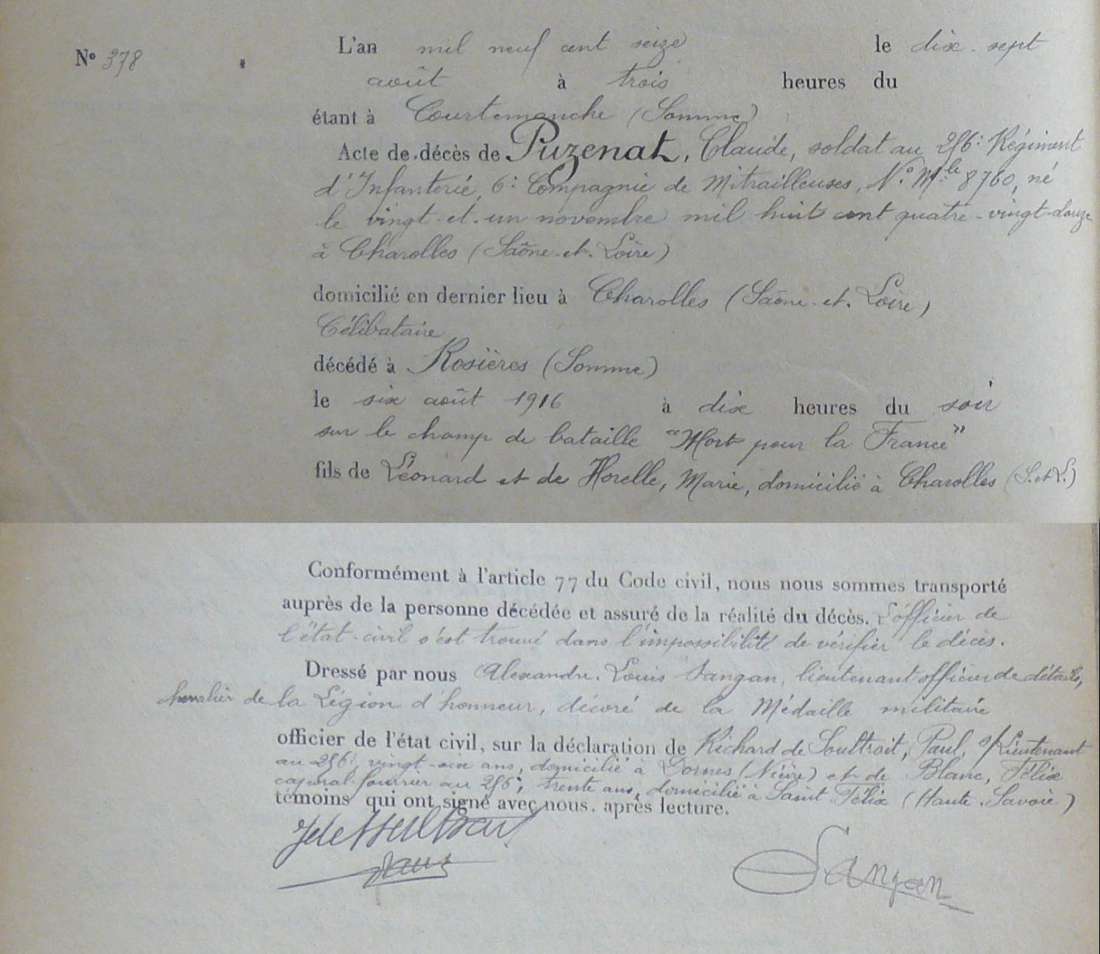 N° 378
L'an mil neuf cent seize le dix-sept
août à trois heures du
étant à Courtemanche (Somme)
Acte de décès de Puzenat, Claude, soldat au 256e Régiment
d'Infanterie, 6e Compagnie de Mitrailleuses, N° Mle 8760, né
le vingt-et-un novembre mil huit cent quatre-vingt-douze
à Charolles (Saône-et-Loire)
domicilié en dernier lieu à Charolles (Saône-et-Loire)
Célibataire
décédé à Rosières (Somme)
le six août 1916 à dix heures du soir
sur le champ de bataille "Mort pour la France"
fils de Léonard et de Horelle, Marie, domicilié à Charolles (S. et L.)
Conformément à l'article 77 du Code civil, nous nous sommes transporté
auprès de la personne décédée et assuré de la réalité du décès. L'officier de
l'état-civil s'est trouvé dans l'impossibilité de vérifier le décès.
Dressé par nous Alexandre Louis Sangan, lieutenant officier de détails,
chevalier de la Légion d'honneur, décoré de la Médaille militaire
officier de l'état civil, sur la déclaration de Richard de Soultrait, Paul, s/Lieutenant
au 256e, vingt-six ans, domicilié à Dornes (Nièvre) et de Blanc, Félix
caporal fourrier au 256e, trente ans, domicilié à Saint Félix (Haute-Savoie)
témoins qui ont signé avec nous, après lecture.
Sangan